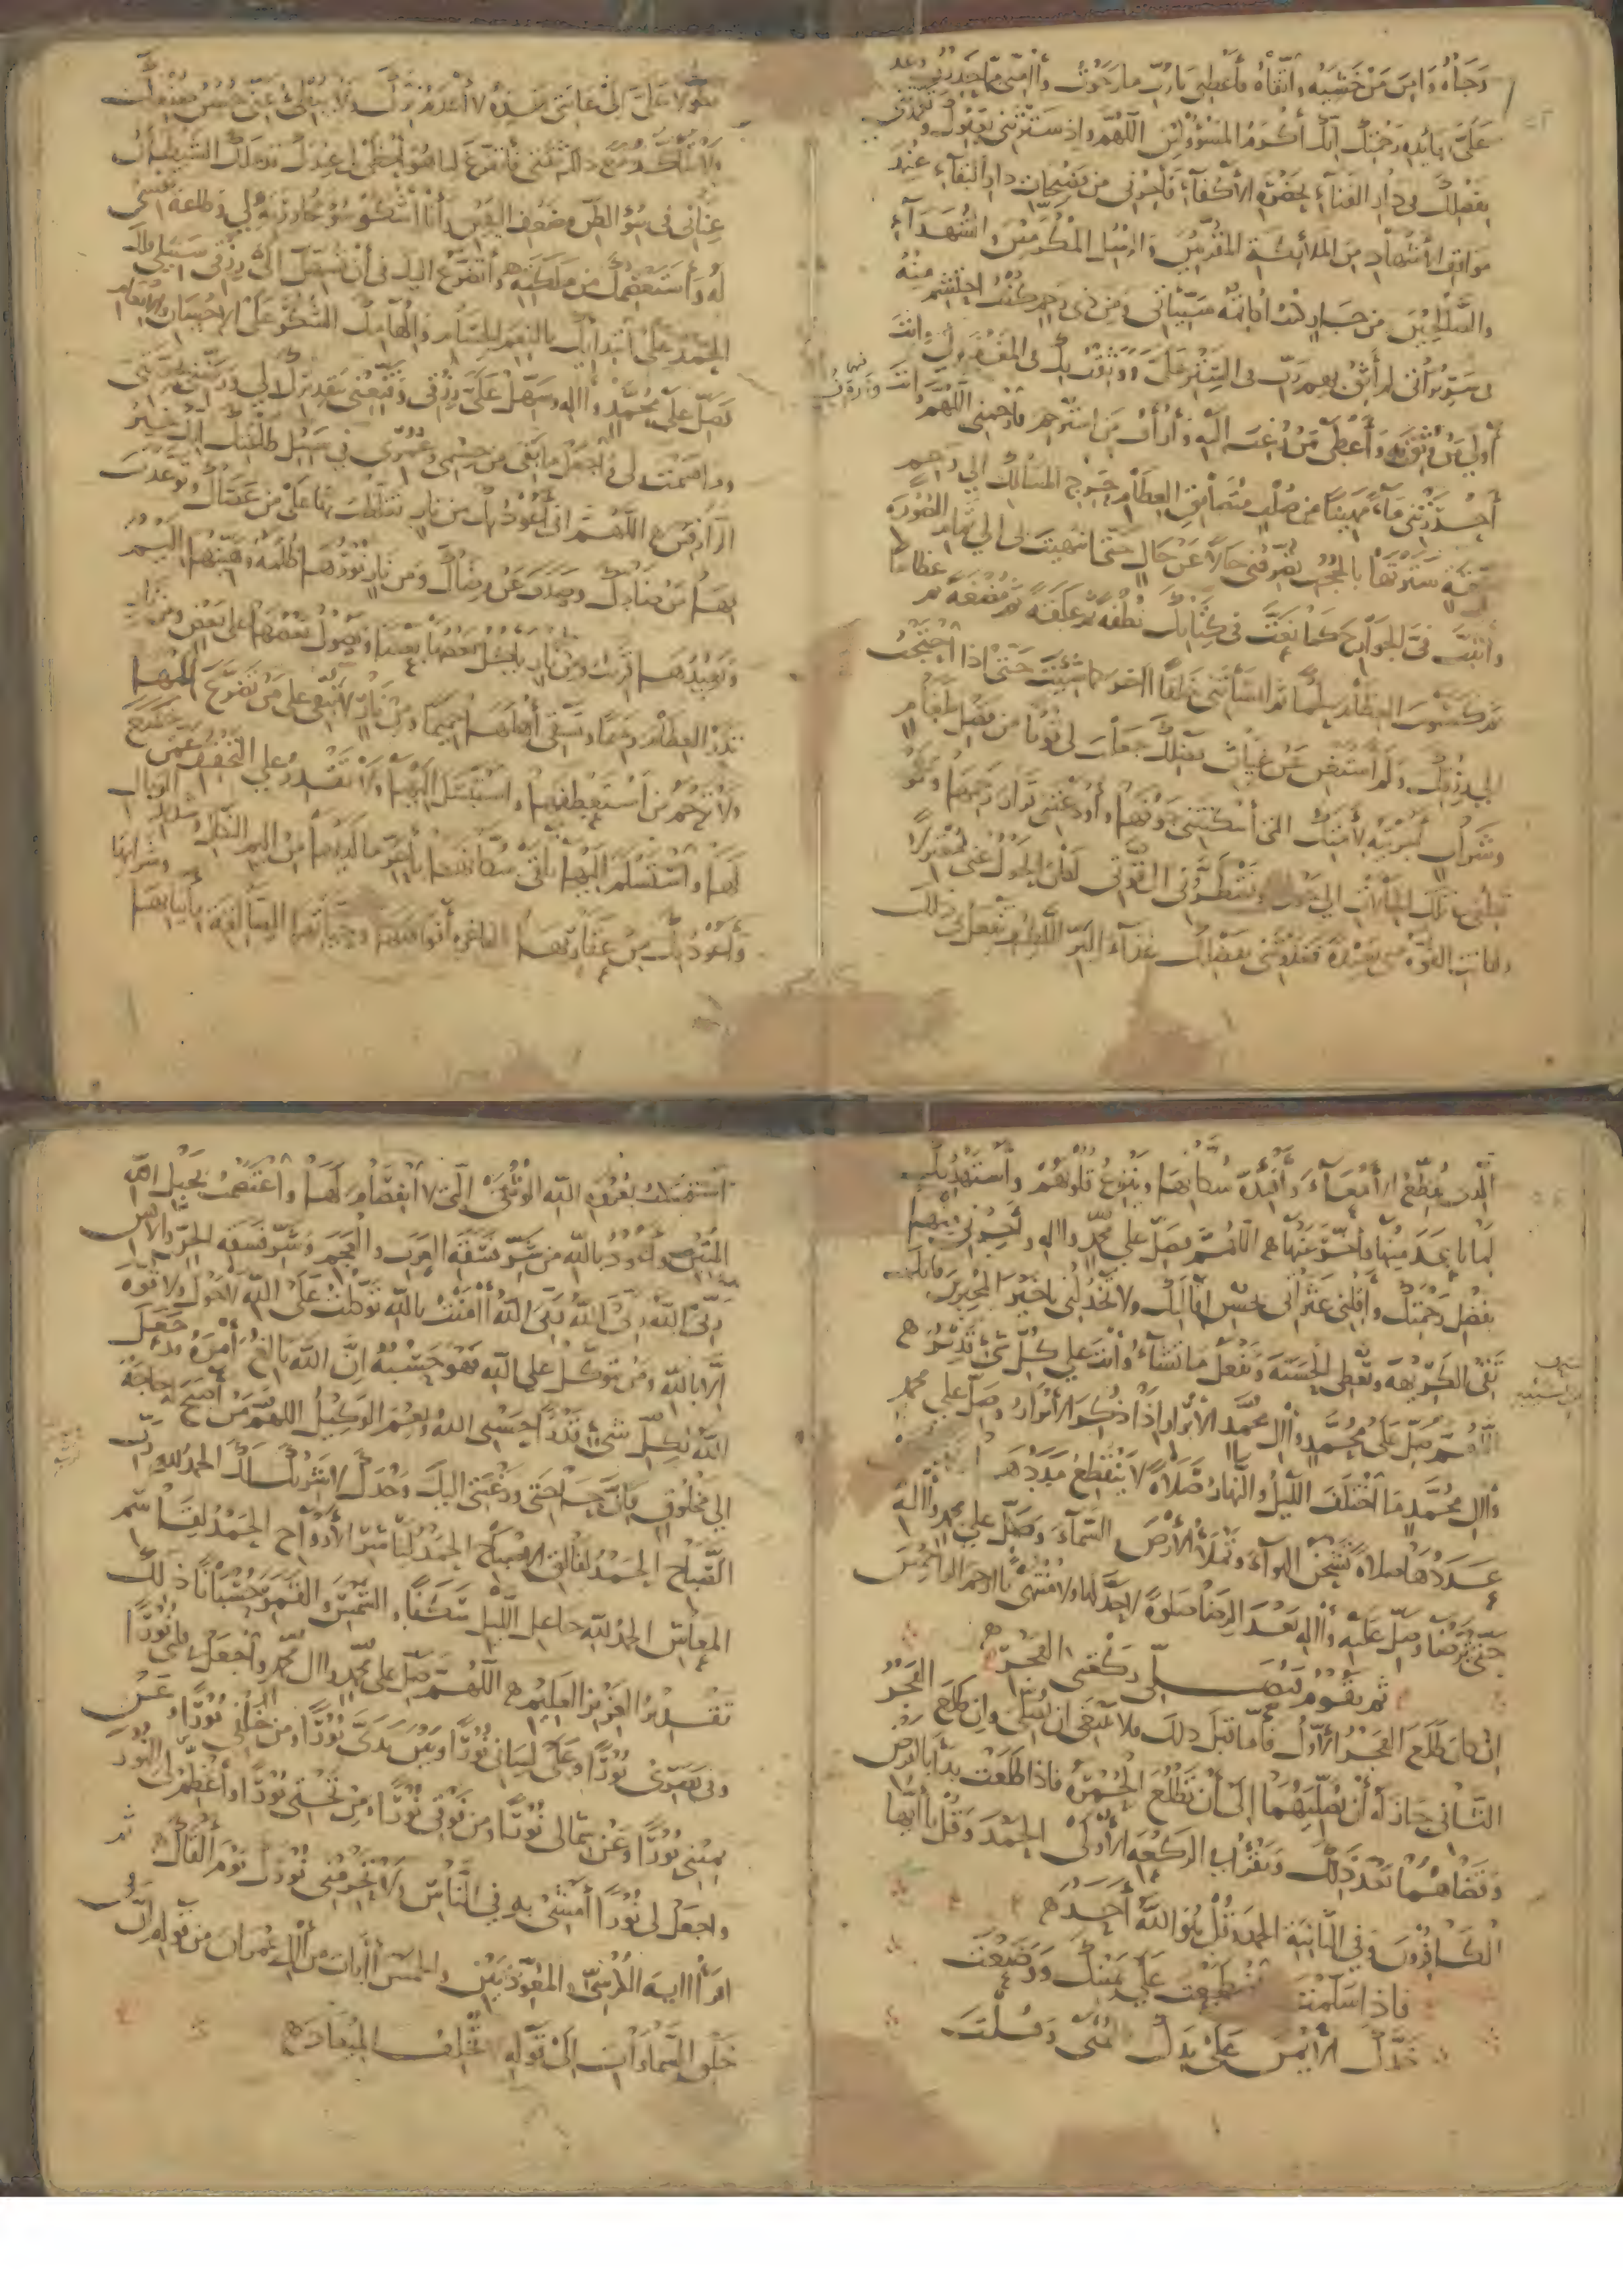 رجاه وامن من خشيه واتقاه فأعطني يا رب ما رجوت وآمني مما حذرت وعد
علي بعائدة رحمتك انك أكرم المسؤولين اللهم واذ سترتني بعفوك وتغمدتني
بفضلك في دار الفناء بحضرة الأكفاء فأجرني من فضيحات دار البقاء عند
مواقف الأشهاد من الملائكة المقربين والرسل المكرمين والشهداء
والصالحين من جار كنت أكاتمه سيئاتي ومن ذي رحم كنت احتشم منه
في سريراتي لم أثق بهم رب في الستر علي ووثقت بك في المغفرة لي وانت
أولى من وثق به وأعطى من رغب اليه وأرأف من استرحم فارحمني اللهم
وانت
أحدرتني ماء مهينا من صلب متضايق العظام حرج المسالك إلى رحم
ضيقة سترتها بالحجب تصرفني حالا عن حال حتى انتهيت بي إلى تمام الصورة
وأثبت في الجوارح كما نعت في كتابك نطفة ثم علقة ثم مضغة ثم عظاما
ثم كسوت العظام لحما ثم انشأتني خلقا آخر كما شئت حتى اذا احتجت
الى رزقك ولم استغن عن غياث فضلك جعلت لي قوتا من فضل طعام
وشراب اجريته لأمتك التي أسكنتني جوفها وأودعتني قرار رحمها ولو
تكلني في تلك الحالات إلى حولي وتضطرني الى قوتي لكان الحول عني معتزلا
ولكانت القوة مني بعيدة فغذوتني بفضلك غذاء البر اللطيف تفعل بي ذلك
تطولا علي إلى غايتي هذه لا أعدم برك ولا يبطئ عني حسن صنيعك
ولا تتأكد مع ذلك ثقتي فأتفرغ لما هو أحظى لي عندك قد ملك الشيطان
عناني في سوء الظن وضعف اليقين وأنا أشكو سوء مجاورته لي وطاعة نفسي
له وأستعصمك من ملكته وأتضرع اليك في أن تسهل الى رزقي سبيلا فلك
الحمد على ابتدائك بالنعم الجسام والهامك الشكر على الاحسان والانعام
فصل على محمد وآله وسهل علي رزقي وقنعني بتقديرك لي ورضني بحصتي
فيما قسمت لي واجعل ما بقي من جسمي وعمري في سبيل طاعتك انك خير
الرازقين ه اللهم اني أعوذ بك من نار تغلظت بها على من عصاك وتوعدت
بها من ضادك وصدف عن رضاك ومن نار نورها ظلمة وهينها أليم
وبعيدها قريب ومن نار يأكل بعضها بعضا ويصول بعضها على بعض ومن نار
تذر العظام رميما وتسقي أهلها حميما ومن نار لا تبقي على من تضرع إليها
ولا ترحم من استعطفها واستبسل اليها ولا تقدر على التخفيف عمن خضع
لها واستسلم إليها تلقى سكانها بأحر ما لديها من اليم النكال وشديد الوبال
وأعوذ بك من عقاربها الفاغرة أفواهها وحياتها الصالقة بأنيابها وشرابها
الذي يقطع أمعاء وأفئدة سكانها وينزع قلوبهم وأستهديك
لما باعد منها وأخر عنها ه اللهم فصل على محمد وآله وأجرني منها
بفضل رحمتك وأقلني عثراتي بحسن اقالتك ولا تخذلني يا خير المجيرين فانك
تقي الكريهة وتعطي الحسنة وتفعل ما تشاء وأنت على كل شيء قدير ه
اللهم صل على محمد وآل محمد الأبرار اذا ذكر الأبرار وصل على محمد
وآل محمد ما اختلف الليل والنهار صلاة لا ينقطع مددها
عددها صلاة تشحن الهواء وتملأ الأرض والسماء وصل على محمد وآله
حتى ترضى وصل عليه وآله بعد الرضا صلوة لا حد لها ولا منتهى يا ارحم الراحمين
ثم تقوم فتصلي ركعتي الفجر ه
ان كان طلع الفجر الأول فأما قبل ذلك فلا ينبغي ان تصلي وان طلع الفجر
الثاني جاز له أن يصليهما إلى أن تطلع الحمرة فاذا طلعت بدأ بالفرض
وقضاهما بعد ذلك وتقرأ في الركعة الأولى الحمد وقل يا أيها
الكافرون وفي الثانية الحمد وقل هو الله أحد ه
فاذا سلمت اضطجعت على يمينك ووضعت
خدك الأيمن على يدك اليمنى وقلت
استمسكت بعروة الله الوثقى التي لا انفصام لها واعتصمت بحبل الله
المتين وأعوذ بالله من شر فسقة العرب والعجم وشر فسقة الجن والانس
ربي الله ربي الله ربي الله آمنت بالله توكلت على الله لا حول ولا قوة
إلا بالله ومن يتوكل على الله فهو حسبه ان الله بالغ أمره قد جعل
الله لكل شيء قدرا حسبي الله ونعم الوكيل اللهم من أصبح له حاجة
الى مخلوق فان حاجتي ورغبتي اليك وحدك لا شريك لك الحمد لله رب
الصباح الحمد لفالق الاصباح الحمد لناشر الأرواح الحمد لقاسم
المعاش الحمد لله جاعل الليل سكنا والشمس والقمر حسبانا ذلك
تقدير العزيز العليم ه اللهم صل على محمد وآل محمد واجعل في قلبي نورا
وفي بصري نورا وعلى لساني نورا وبين يدي نورا ومن خلفي نورا وعن
يميني نورا وعن شمالي نورا ومن فوقي نورا ومن تحتي نورا وأعظم لي النور
واجعل لي نورا أمشي به في الناس ولا تحرمني نورك يوم ألقاك ثم
اقرأ آية الكرسي والمعوذتين والخمس آيات من آل عمران من قوله ان في
خلق السماوات الى قوله لا تخلف الميعاد ه